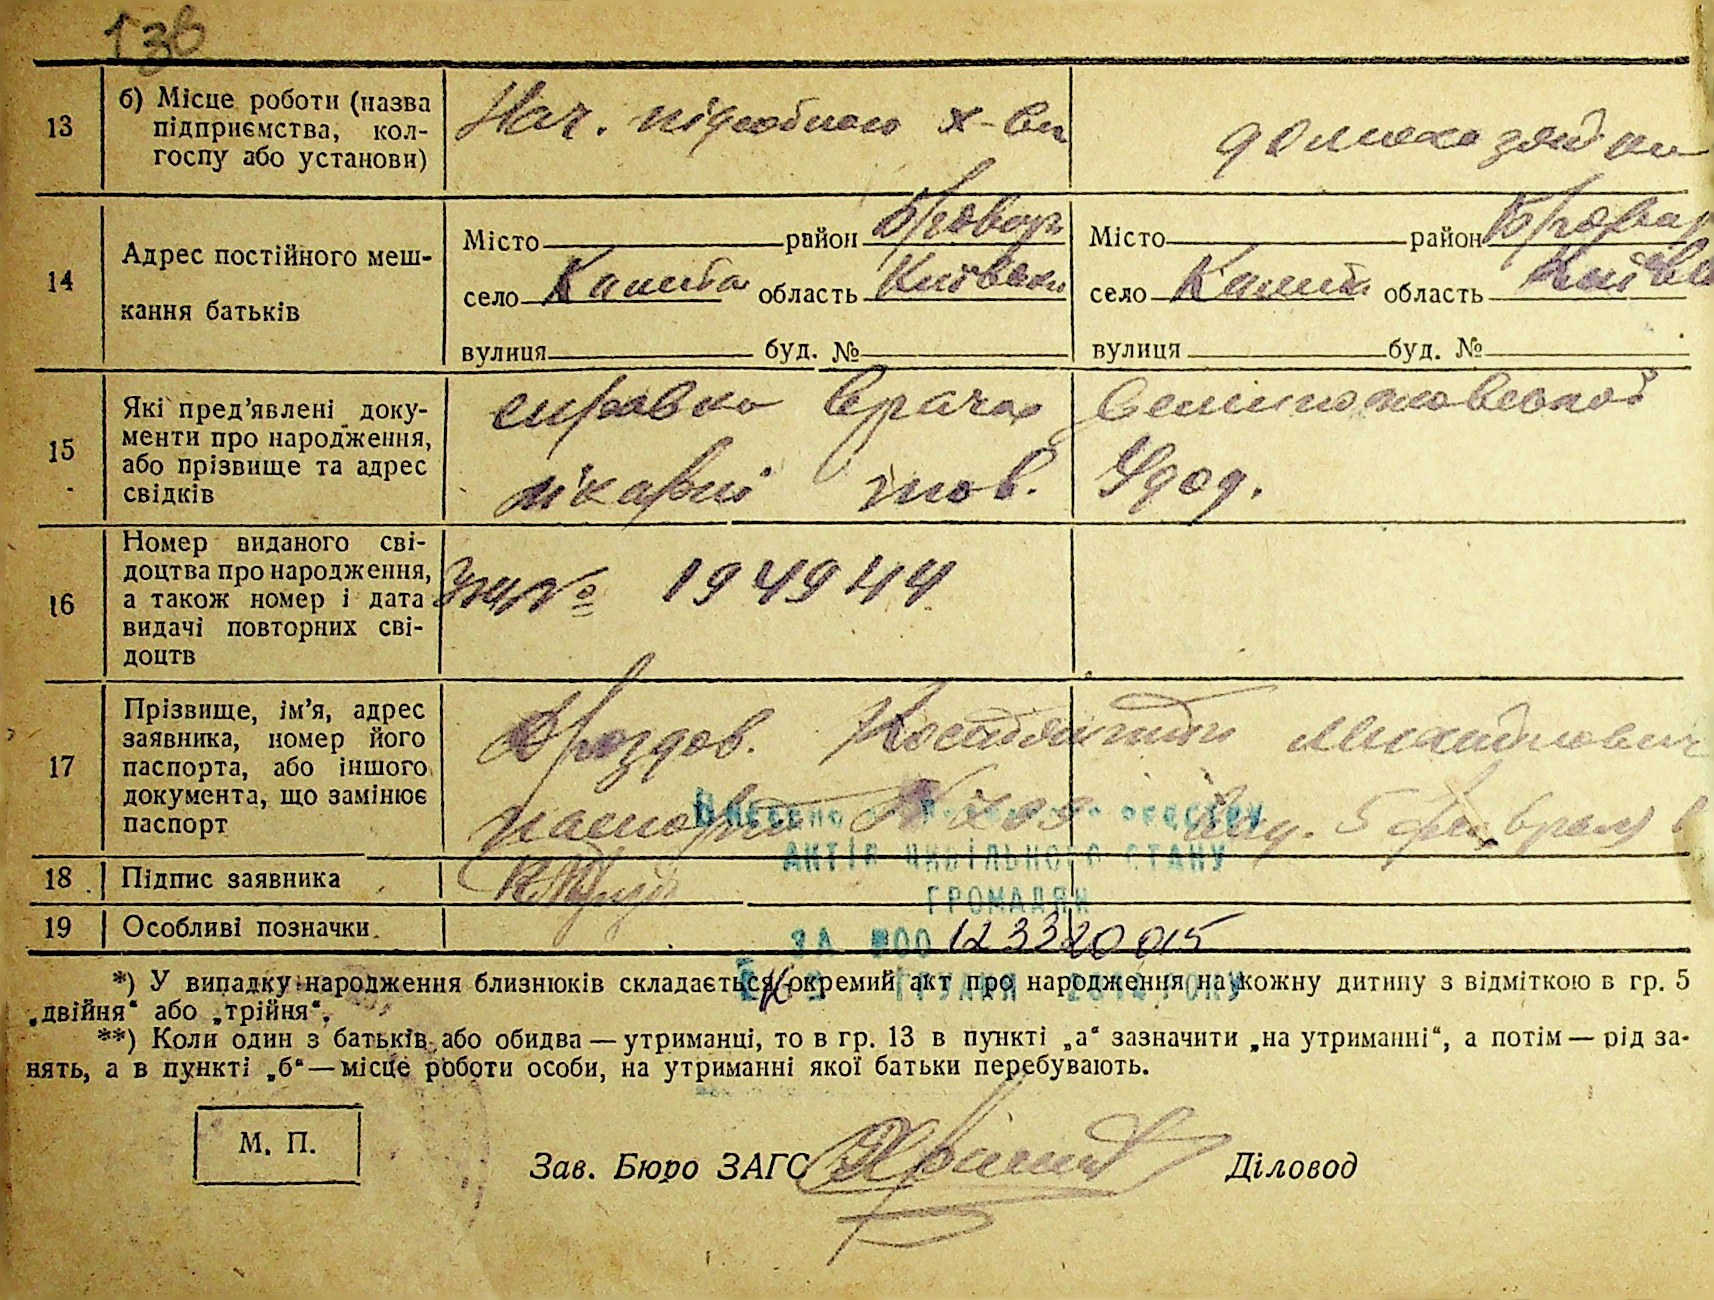 13в
13 б) Місце роботи (назва підприємства, кол- Нач. підсобного х-ва домохозяйка
госпу або установи)
Місто район Бровар Місто район Бровар
14 Адрес постійного меш-
кання батьків
село Калита область Київськ село Калита область Київсь
вулиця буд. № вулиця буд. №
15 Які пред'явлені доку- справка врача Семиполковської
менти про народження,
або прізвище та адрес лікарні тов. Удод.
свідків
16 Номер виданого сві-
доцтва про народження, № 194944
а також номер і дата
видачі повторних сві-
доцтв
17 Прізвище, ім'я, адрес Дроздов. Константин Михайлович
заявника, номер його
паспорта, або іншого
документа, що замінює паспорт № выд. 5 февраля
паспорт
Внесено до Державного реєстру
актів цивільного стану
громадян
18 Підпис заявника
19 Особливі позначки
за №00 123320015
грудня року
*) У випадку народження близнюків складається окремий акт про народження на кожну дитину з відміткою в гр. 5
„двійня“ або „трійня“.
**) Коли один з батьків або обидва — утриманці, то в гр. 13 в пункті „а“ зазначити „на утриманні“, а потім — рід за-
нять, а в пункті „б“ — місце роботи особи, на утриманні якої батьки перебувають.
М. П.
Зав. Бюро ЗАГС Діловод